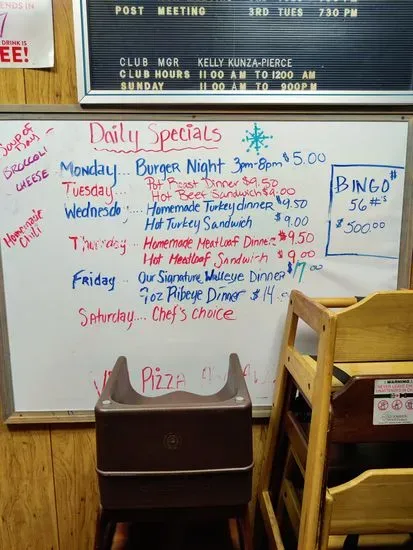 ENDS IN
DRINK IS
EE!
POST MEETING 3RD TUES 7:30 PM
CLUB MGR KELLY KUNZA-PIERCE
CLUB HOURS 11 00 AM TO 1200 AM
SUNDAY 11 00 AM TO 900PM
Daily Specials
Soup of
Day
BROCCOLI
CHEESE
Homemade
Chili
Monday... Burger Night 3pm-8pm $5.00
Tuesday... Pot Roast Dinner $9.50
Hot Beef Sandwich $9.00
Wednesday Homemade Turkey dinner $9.50
Hot Turkey Sandwich $9.00
Thursday Homemade Meatloaf Dinner $9.50
Hot Meatloaf Sandwich $9.00
Friday... Our Signature Walleye Dinner $17.00
7oz Ribeye Dinner $14.
Saturday.... Chef's Choice
PIZZA
BINGO #
56 #'s
$500.00
WARNING